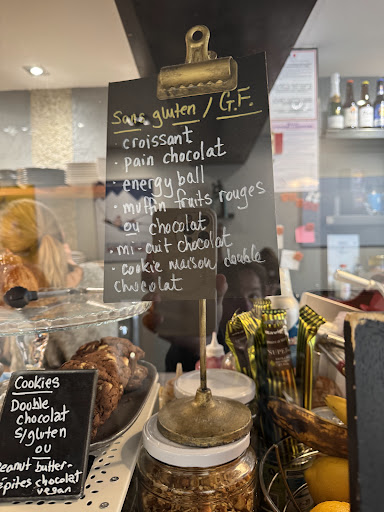 Sans gluten / G.F.
croissant
• pain chocolat
• energy ball
• muffin fruits rouges
ou chocolat
• mi-cuit chocolat
• cookie maison double
chocolat
Cookies
Double
chocolat
S/gluten
OU
Peanut butter-
pépites chocolat
vegan